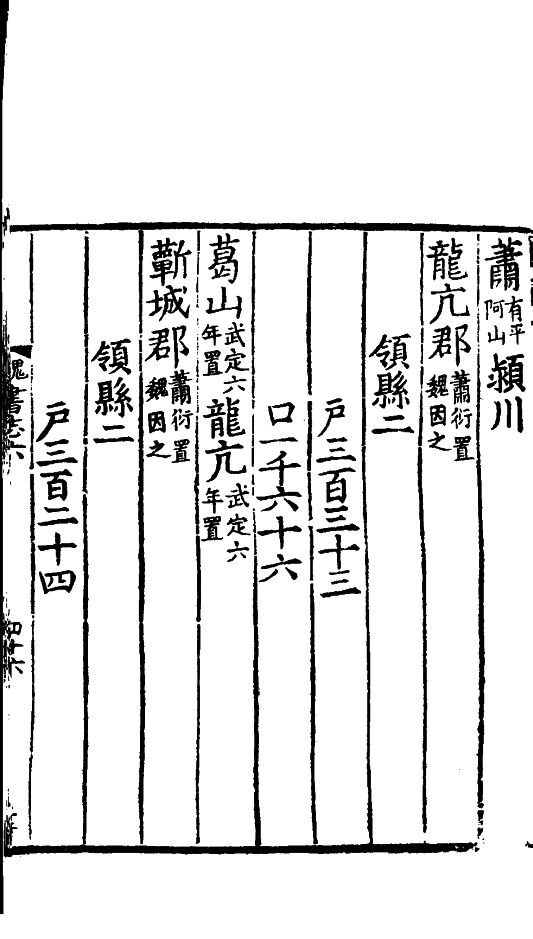 蕭有平阿山潁川
龍亢郡蕭衍置魏因之
領縣二
戶三百三十三
口一千六十六
葛山武定六年置龍亢武定六年置
蘄城郡蕭衍置魏因之
領縣二
戶三百二十四
書志六